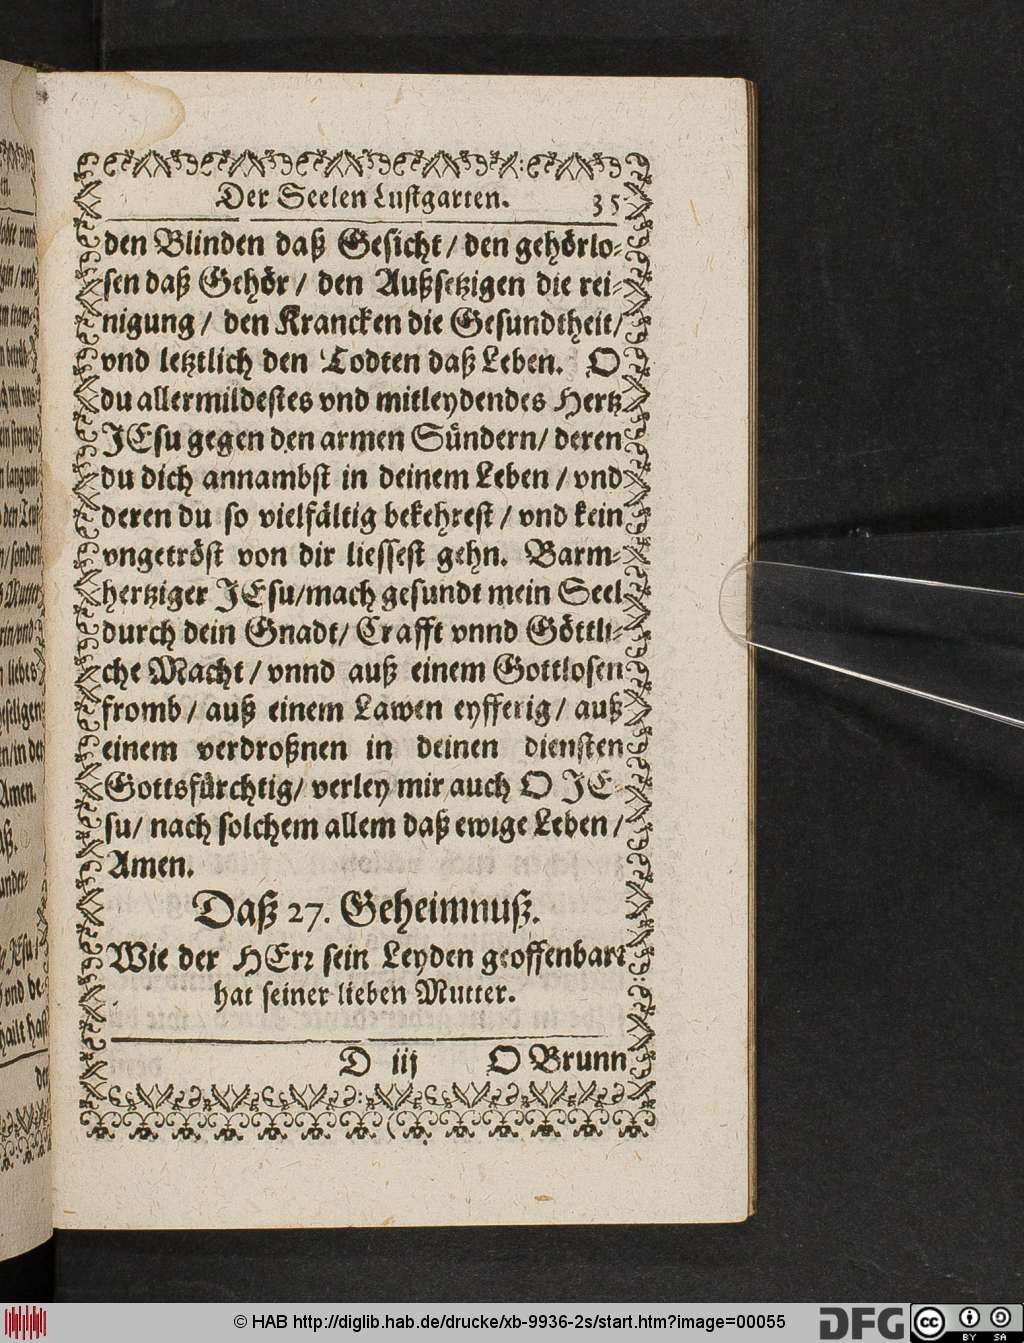 Der Seelen Lustgarten. 35
den Blinden daß Gesicht / den gehörlo-
sen daß Gehör / den Außsetzigen die rei-
nigung / den Krancken die Gesundtheit /
vnd letztlich den Todten daß Leben. O
du allermildestes vnd mitleydendes Hertz
JEsu gegen den armen Sündern / deren
du dich annambst in deinem Leben / vnd
deren du so vielfältig bekehrest / vnd kein
vngetröst von dir liessest gehn. Barm-
hertziger JEsu / mach gesundt mein Seel
durch dein Gnadt / Crafft vnnd Göttli-
che Macht / vnnd auß einem Gottlosen
fromb / auß einem Lawen eyfferig / auß
einem verdroßnen in deinen diensten
Gottsfürchtig / verley mir auch O JE-
su / nach solchem allem daß ewige Leben /
Amen.
Daß 27. Geheimnuß.
Wie der HErr sein Leyden geoffenbart
hat seiner lieben Mutter.
D iij O Brunn
© HAB http://diglib.hab.de/drucke/xb-9936-2s/start.htm?image=00055
DFG
cc BY SA